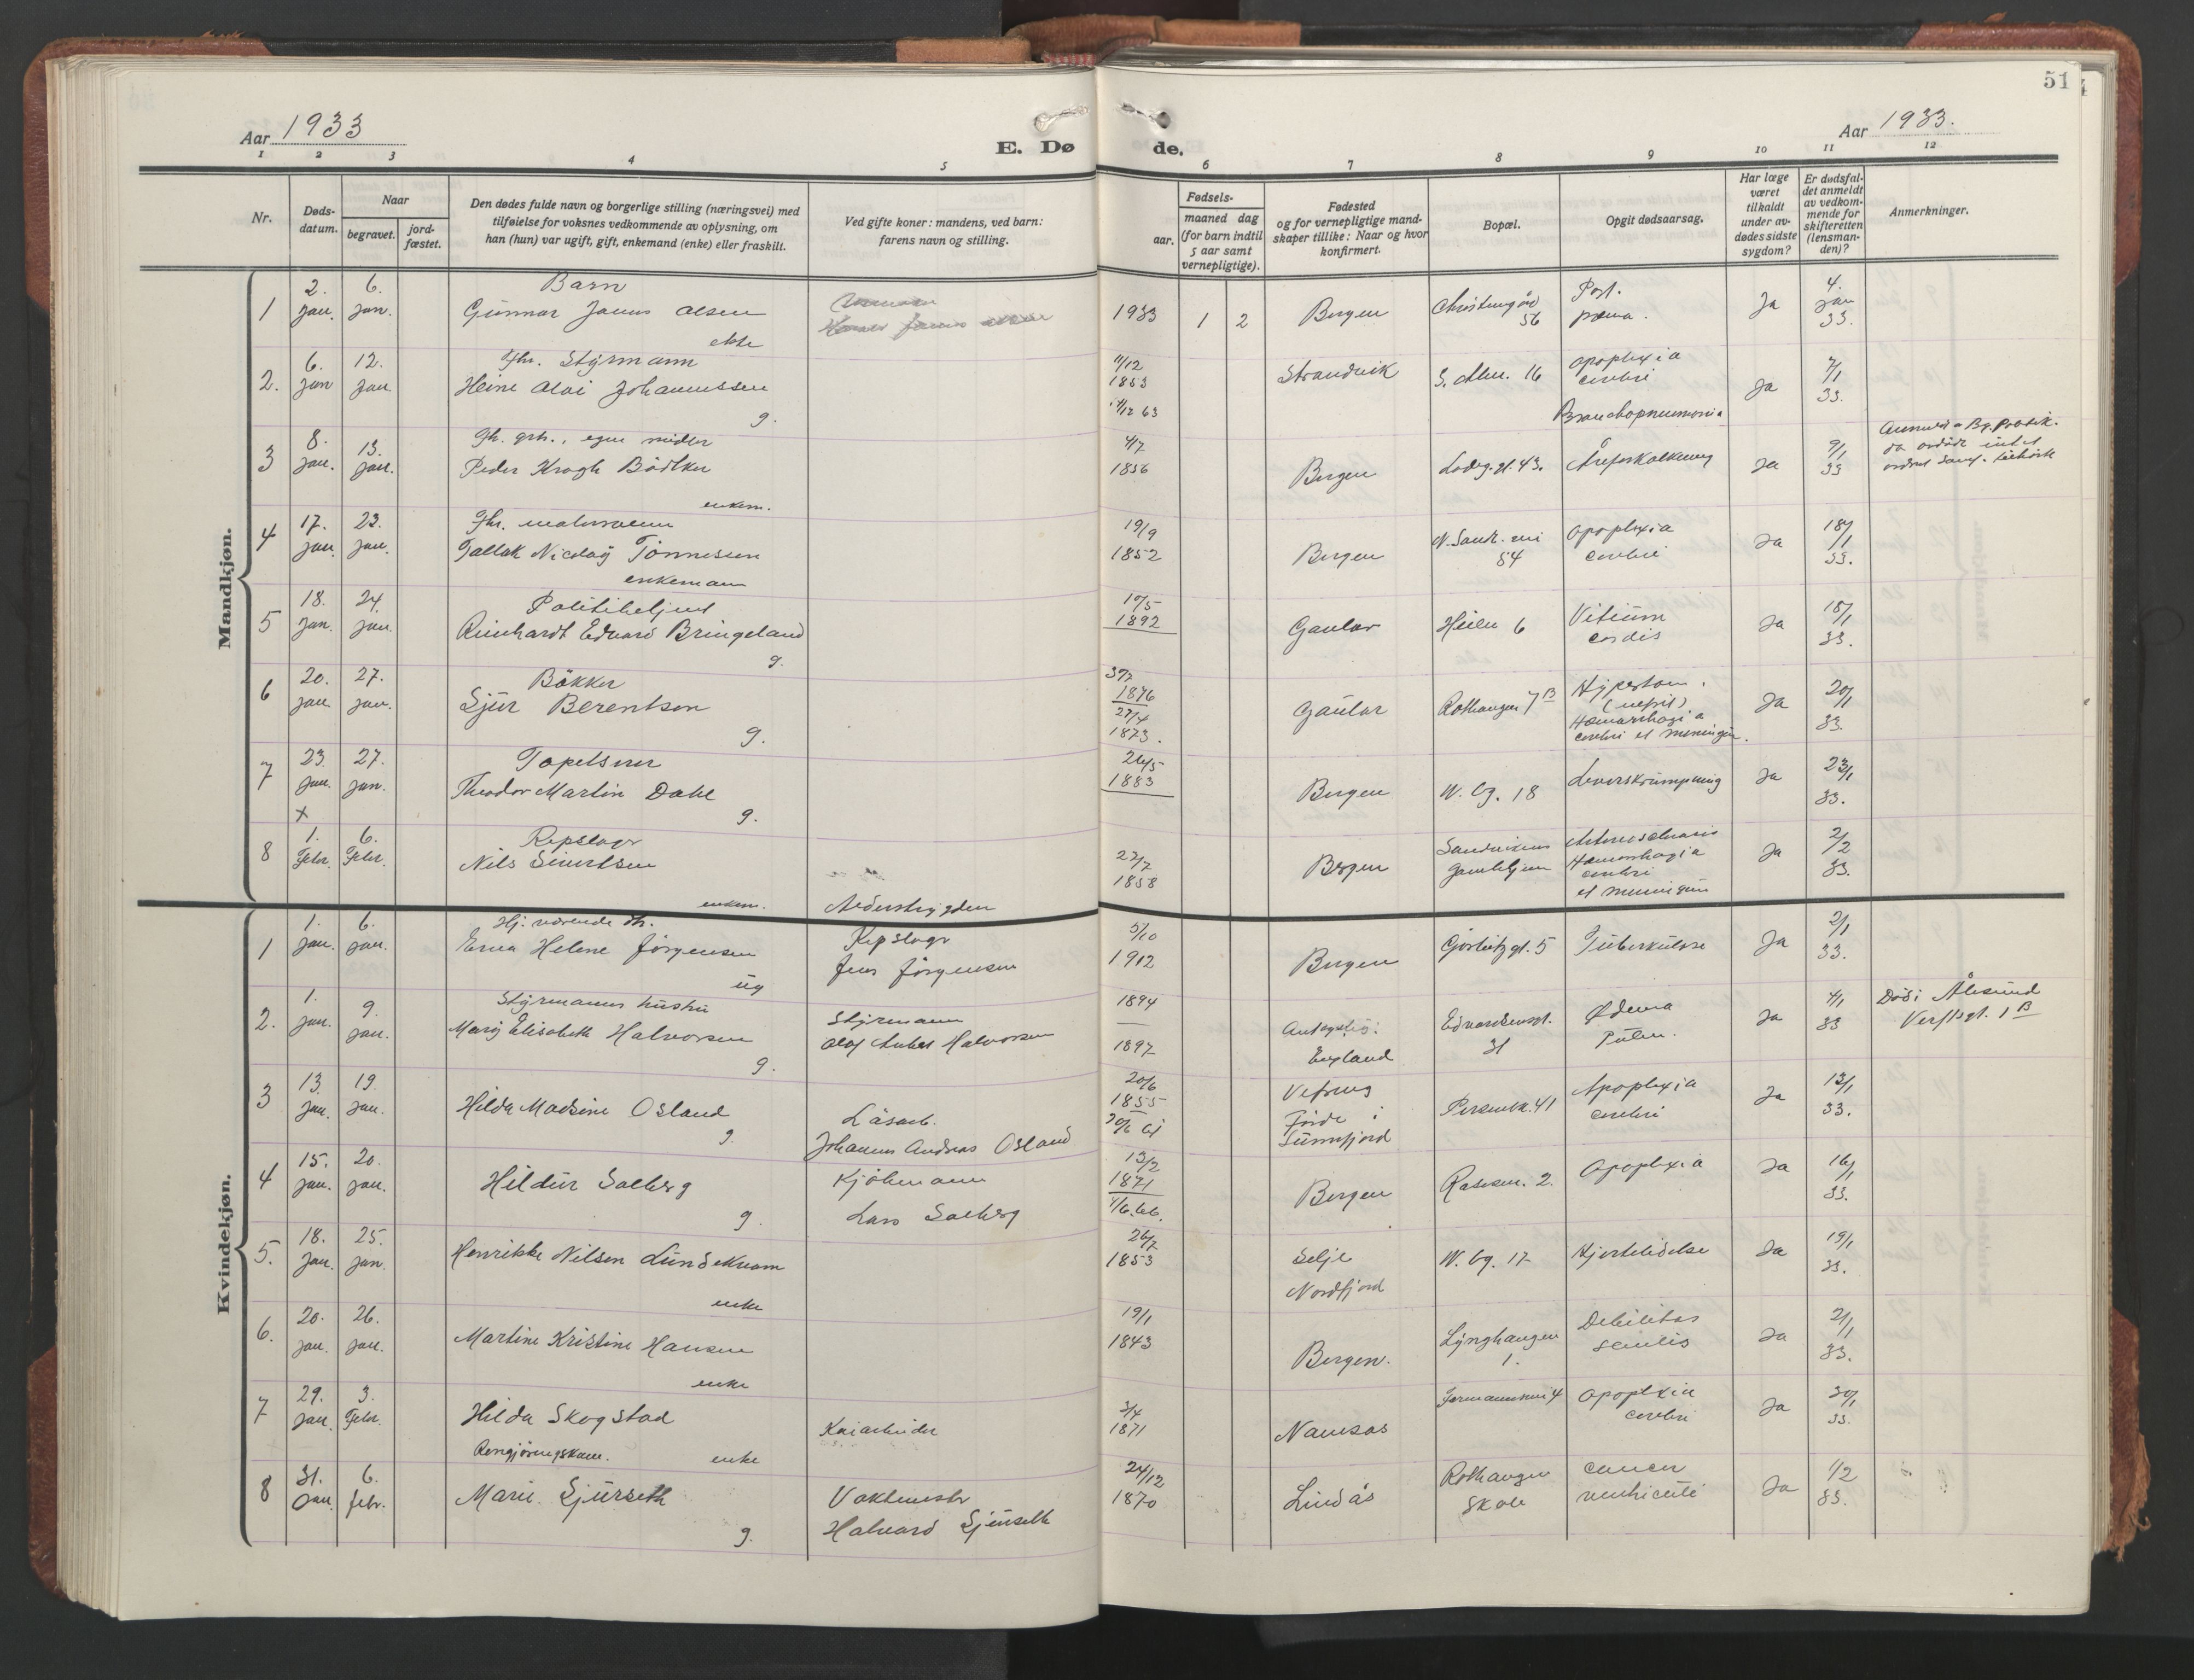 51
Aar 1933
E. Dø
de.
Aar 1933.
1 2 3 4 5 6 7 8 9 10 11 12
Nr.
Døds-
datum.
Naar
begravet.
jord-
fæstet.
Den dødes fulde navn og borgerlige stilling (næringsvei) med
tilføielse for voksnes vedkommende av oplysning, om
han (hun) var ugift, gift, enkemand (enke) eller fraskilt.
Ved gifte koner: mandens, ved barn:
farens navn og stilling.
aar.
Fødsels-
maaned dag
(for barn indtil
5 aar samt
vernepligtige).
Fødested
og for vernepligtige mand-
skaper tillike: Naar og hvor
konfirmert.
Bopæl.
Opgit dødsaarsag.
Har læge
været
tilkaldt
under av-
dødes sidste
sygdom?
Er dødsfal-
det anmeldt
av vedkom-
mende for
skifteretten
(lensman-
den)?
Anmerkninger.
Mandkjøn.
1 2. Jan. 6. Jan. Barn
Gunnar Janus Olsen
ekte
1933 1 2 Bergen 56 Ja 4. jan 33.
2. 6. Jan 12. Jan. Fhr. Styrmann
Heine Olai Johannessen
g.
11/12 1853 Strandvik S. Alm. 16 Apoplexia cerebri
Bronchopneumonia Ja 7/1 33.
3 8. Jan. 13. Jan. egne midler
Peder Krogh Bödtker
enkem.
4/7 1856 Bergen Ladeg. gt. 43. Åreforkalkning Ja 9/1 33
4 17. Jan. 23. Jan. Fhr.
Tallak Nicolay Tönnessen
enkemann
19/9 1852 Bergen N. Sandv. vei 54 Apoplexia cerebri Ja 18/1 33.
5 18. Jan. 24. Jan. Politibetjent
Reinhardt Edvard Bringeland
g.
1892 Gaular Heien 6 Vitium cordis Ja 18/1 33.
6 20. Jan. 27. Jan. Bökker
Sjur Berentsen
g.
1876
27/4
1873. Gaular Rothaugen 7 B
Hæmorrhagia
cerebri et meningum. Ja 20/1 33.
7 23. Jan. 27. Jan. Tapetserer
Theodor Martin Dahl
g.
26/5 1883 Bergen Leverskrumpning Ja 23/1 33.
x
8 1. Febr. 6. Febr. Repslager
Nils Sivertsen
enkem.
22/7 1858 Bergen Sandvikens gamlehjem
Hæmorrhagia
cerebri
et meningum Ja 2/2 33.
Kvindekjøn.
1 1. Jan. 6. Jan. Hj. værende dtr.
Erna Helene Jörgensen
ug
Repslager
Jens Jörgensen
5/10 1912 Bergen Görbitzgt. 5 Tuberkulose Ja 2/1 33.
2. 1. Jan. 9. Jan. Styrmanns hustru
Mary Elisabeth Halvorsen
g.
Styrmann
Halvorsen
1894
1897 Antagelig:
England Edvardsensgt. 31 Ødema Pulm. Ja 4/1 33 Död i Ålesund
Verftsgt. 1 B
3 13. Jan. 19. Jan. Hilda Madsine Osland
g.
Läsarb.
Johannes Andreas Osland
20/6 1855
Vefring
Förde i
Sunnfjord Apoplexia cerebri Ja 13/1 33.
4 15. Jan. 20. Jan. Hildur Solberg
g.
Kjöbmann
Lars Solberg
13/2 1871 Bergen Apoplexia Ja 16/1 33.
5. 18. Jan. 25. Jan. Henrikke Nilsen Lundekvam
enke
26/7 1853 Selje
Nordfjord Hjertelidelse Ja 19/1 33.
6. 20. Jan. 26. Jan. Martine Kristine Hansen
enke
19/1 1843 Bergen. Lynghaugen 1. Debilitas senilis Ja 21/1 33.
7 29. Jan. 3. Febr. Hilda Skogstad
Rengjöringskone. enke
Kaiarbeider
3/4 1871 Namsos Apoplexia cerebri Ja 30/1 33.
8 31. Jan. 6. febr. Marie Sjurseth
g.
Vaktmester
Halvard Sjurseth
24/12 1870 Lindås Rothaugen Skole Cancer ventriculi Ja 1/2 33.